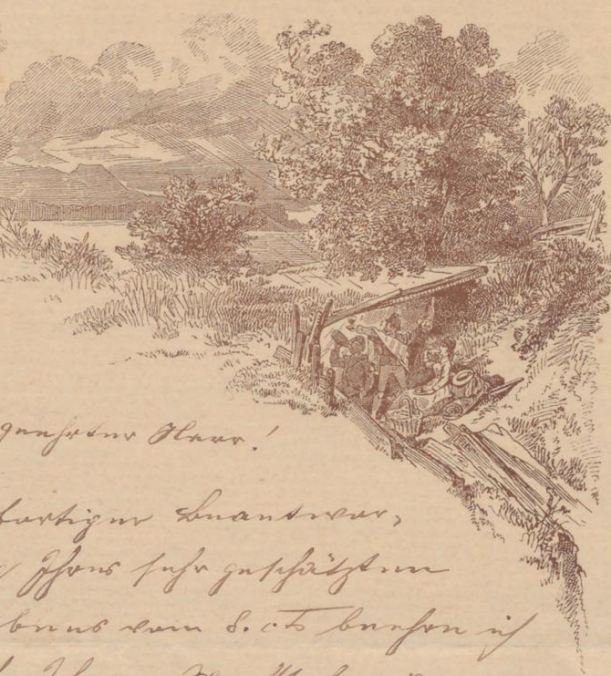 geehrter Herr!
sofortiger Beantwor-
Ihres sehr geschätzten
bens vom 8. cts beehre ich